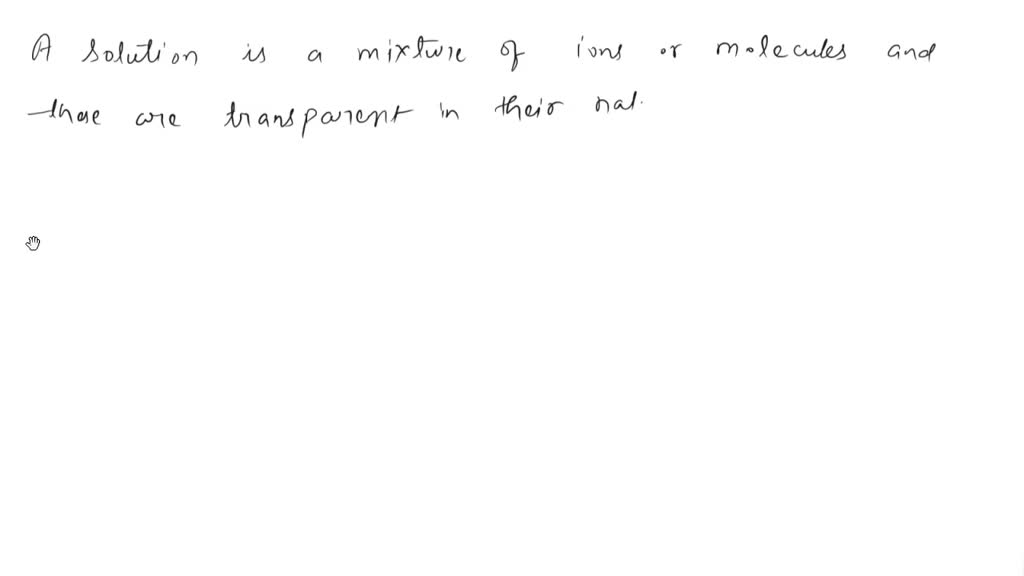 A solution is a mixture of ions or molecules and
these are transparent in their nat.